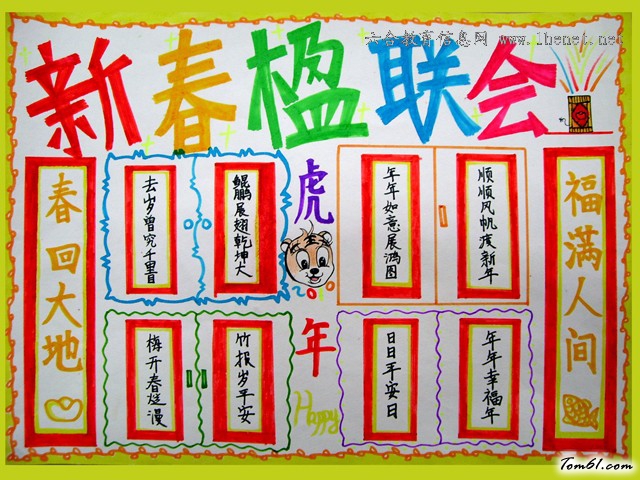 六合教育信息网 www.lhenet.net
新春楹联会
春回大地
去岁曾究千里目
鲲鹏展翅乾坤大
虎
年年如意展鸿图
顺顺风帆度新年
福满人间
2010
梅开春烂漫
竹报岁平安
年
Happy
日日平安日
年年幸福年
Tom61.com